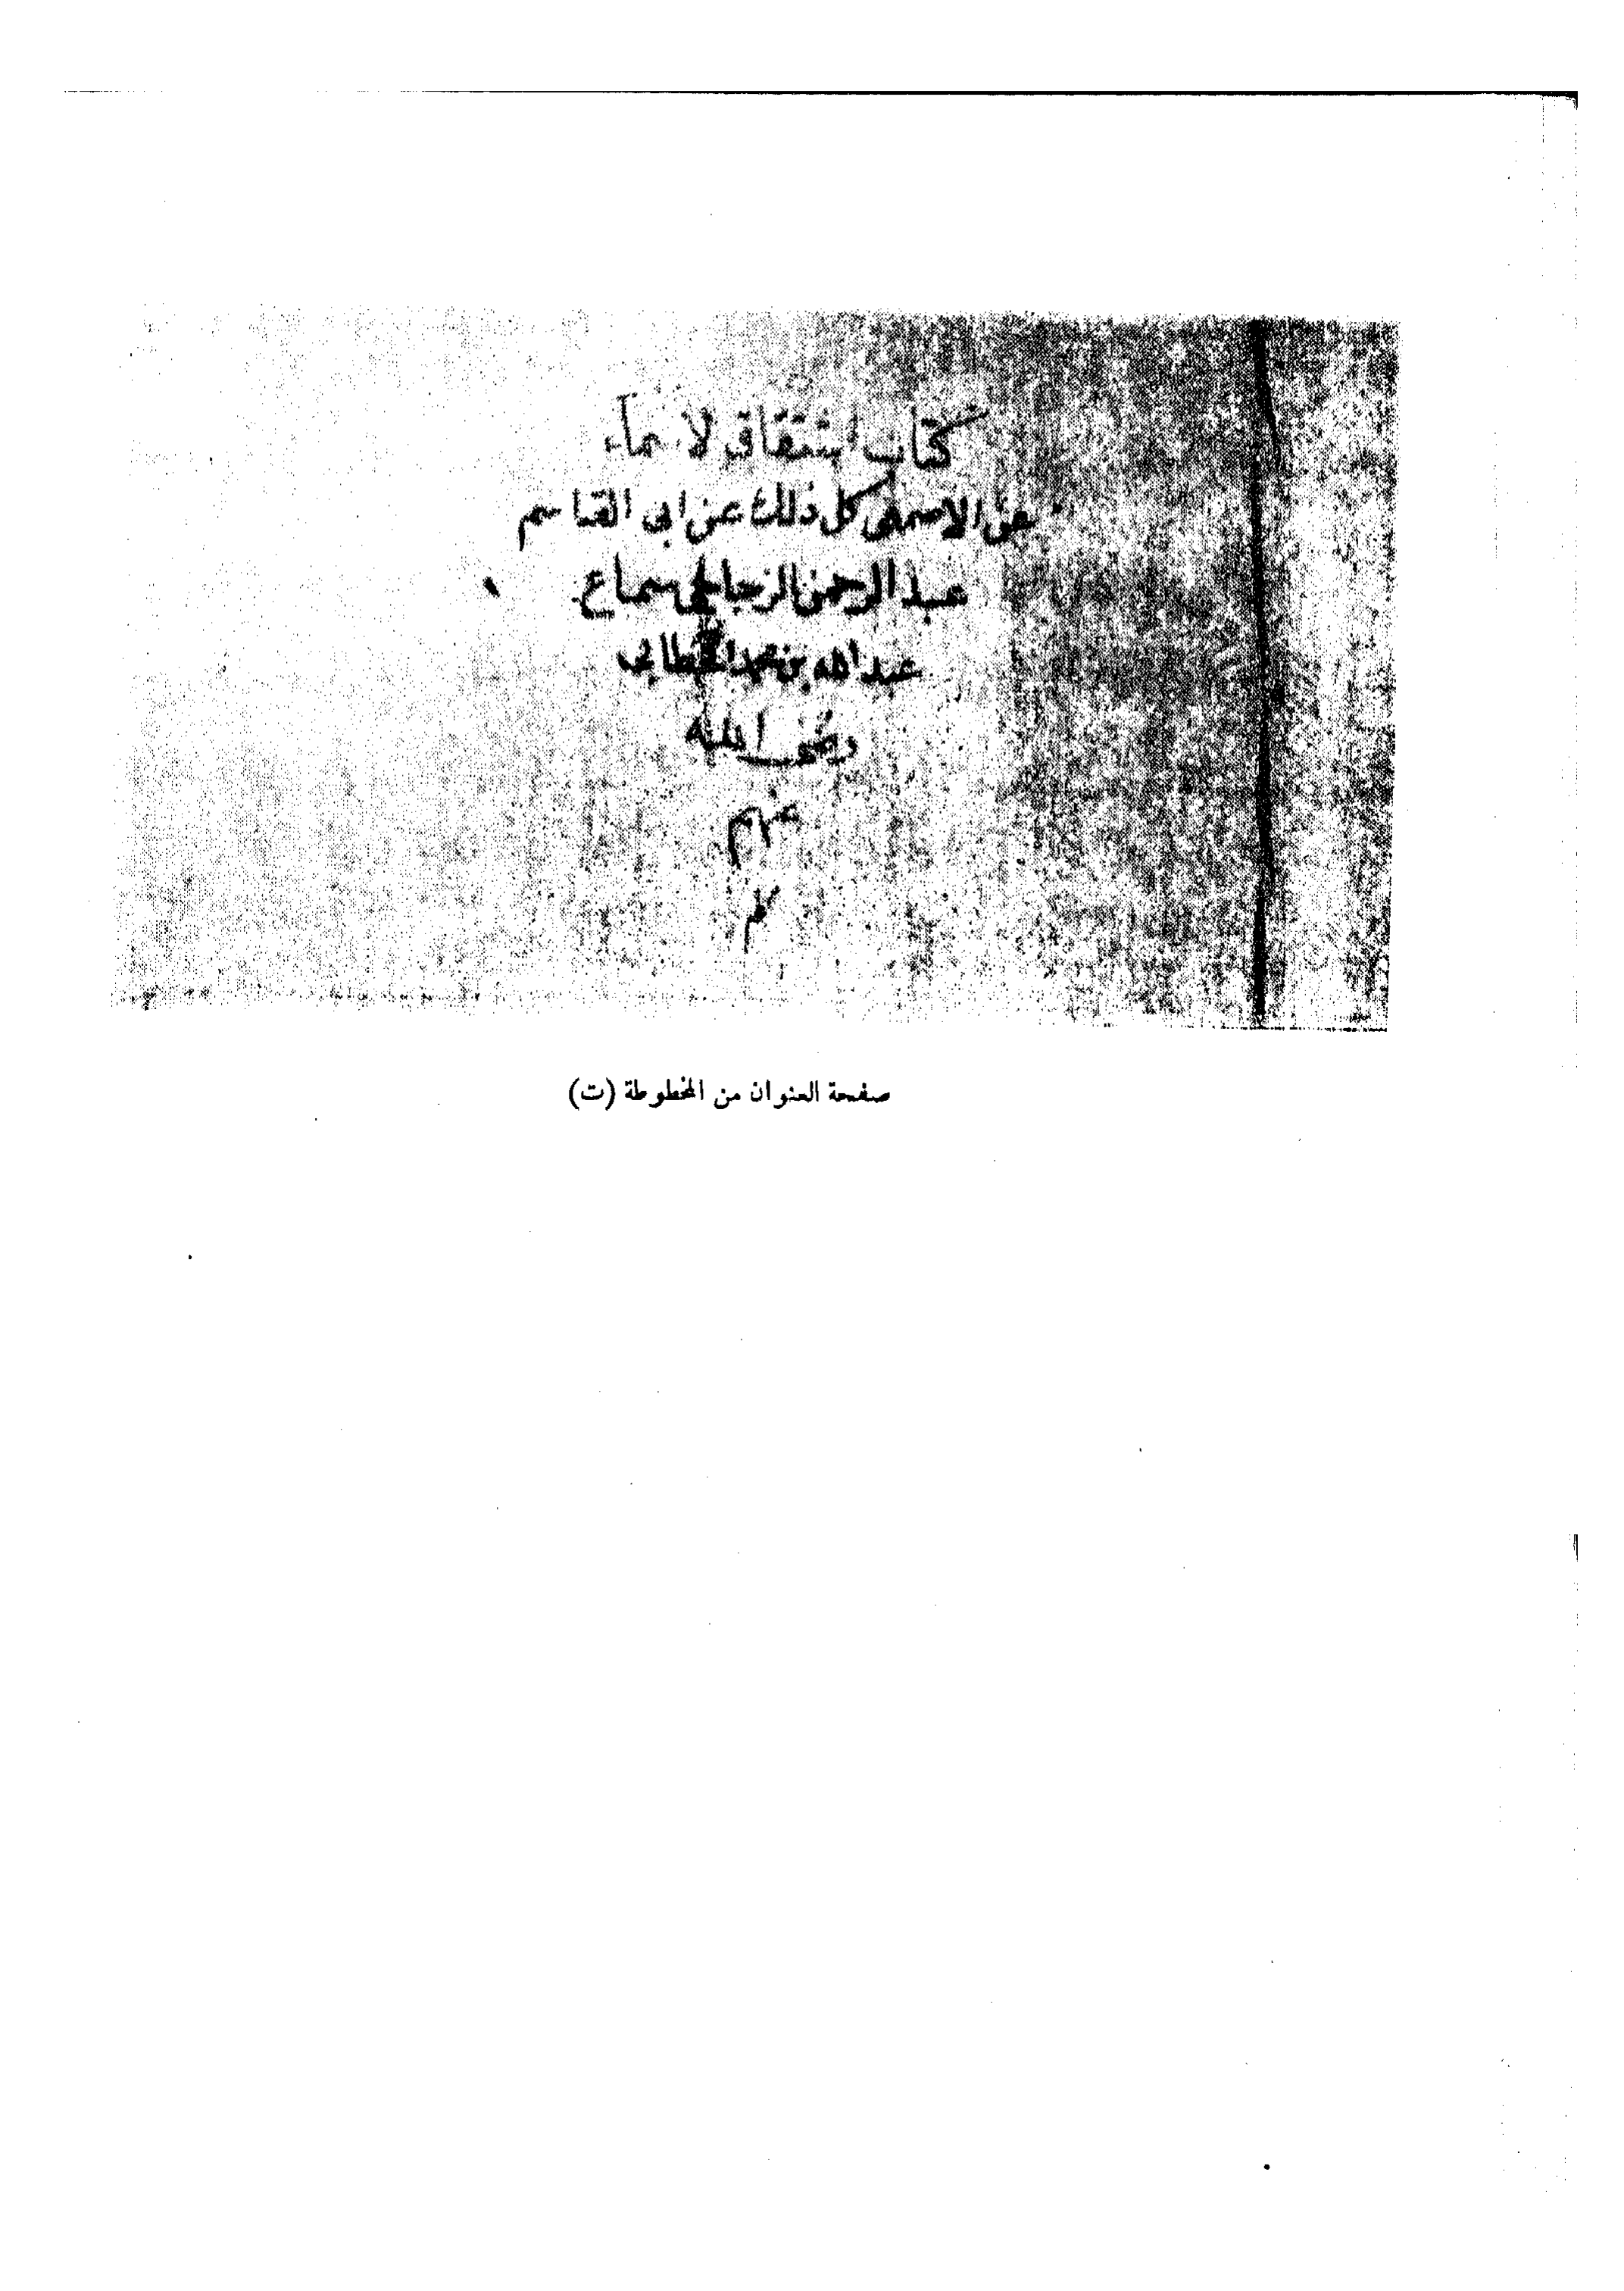 كتاب اشتقاق الاسماء
عن الاصمعى كل ذلك عن ابى القاسم
عبد الرحمن الزجاجى سماع
عبد الله بن محمد الخطابى
رضى الله
عنهم
صفحة العنوان من المخطوطة (ت)